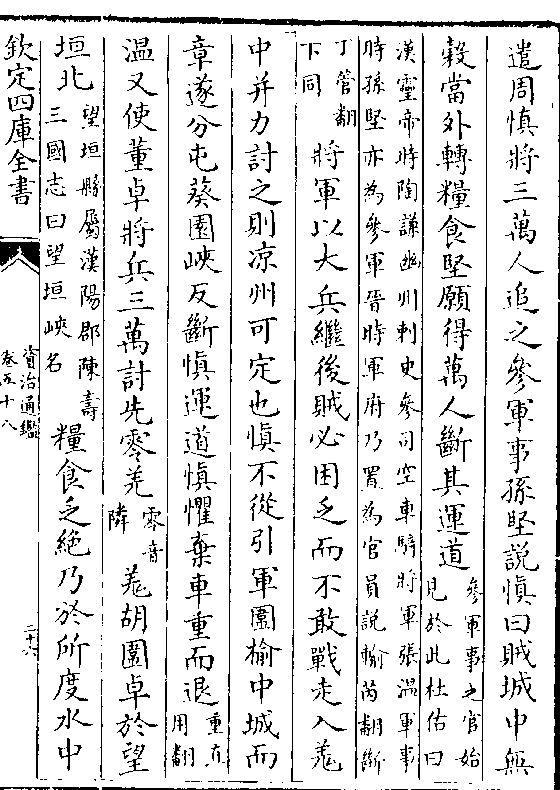 遣周慎將三萬人追之參軍事孫堅說慎曰賊城中無
穀當外轉糧食堅願得萬人斷其運道
參軍事之官始
見於此杜佑曰
漢靈帝時陶謙幽州刺史參司空車騎將軍張温軍事
時孫堅亦為參軍晉時軍府乃置為官員說輸芮翻斷
丁管翻
下同
將軍以大兵繼後賊必困乏而不敢戰走入羌
中并力討之則凉州可定也慎不從引軍圍榆中城而
章遂分屯葵園峽反斷慎運道慎懼棄車重而退
重直
用翻
温又使董卓將兵三萬討先零羌
零音
隣
羌胡圍卓於望
垣北
望垣縣屬漢陽郡陳壽
三國志曰望垣峽名
糧食乏絶乃於所度水中
欽定四庫全書
資治通鑑
卷五十八
二十六